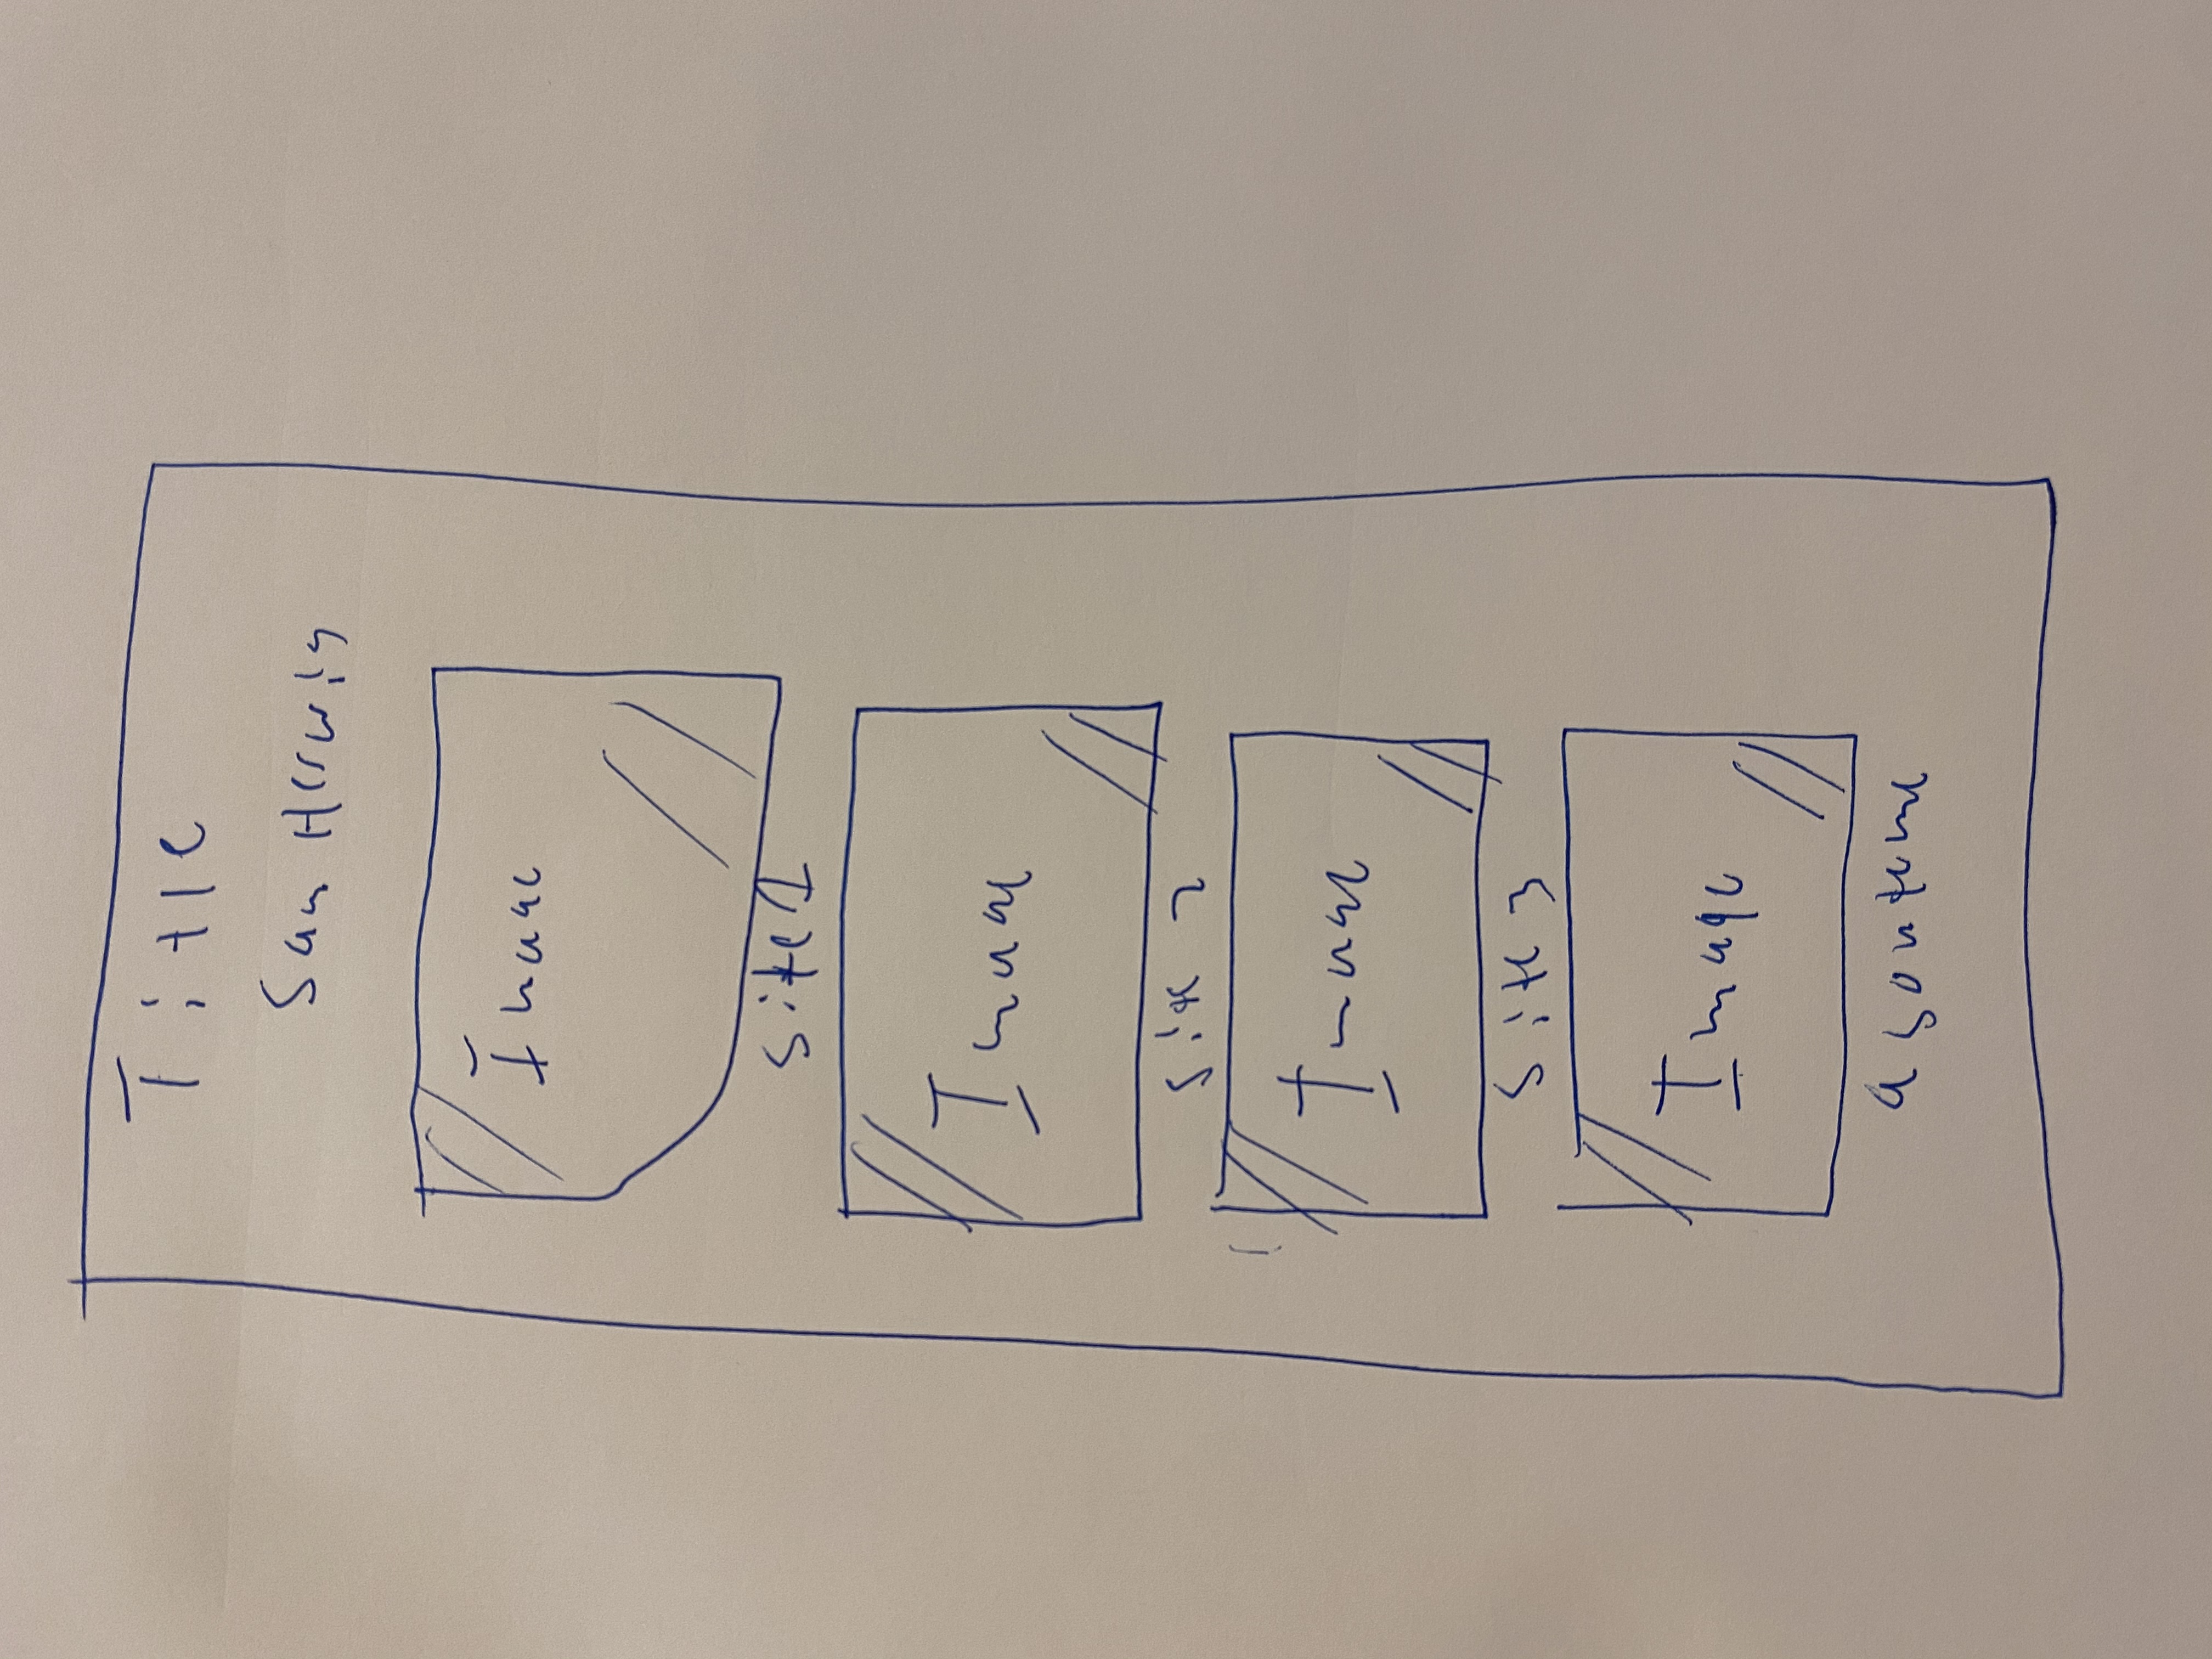 Title
Sam Herwig
Image
Site 1
Image
Site 2
Image
Site 3
Image
a